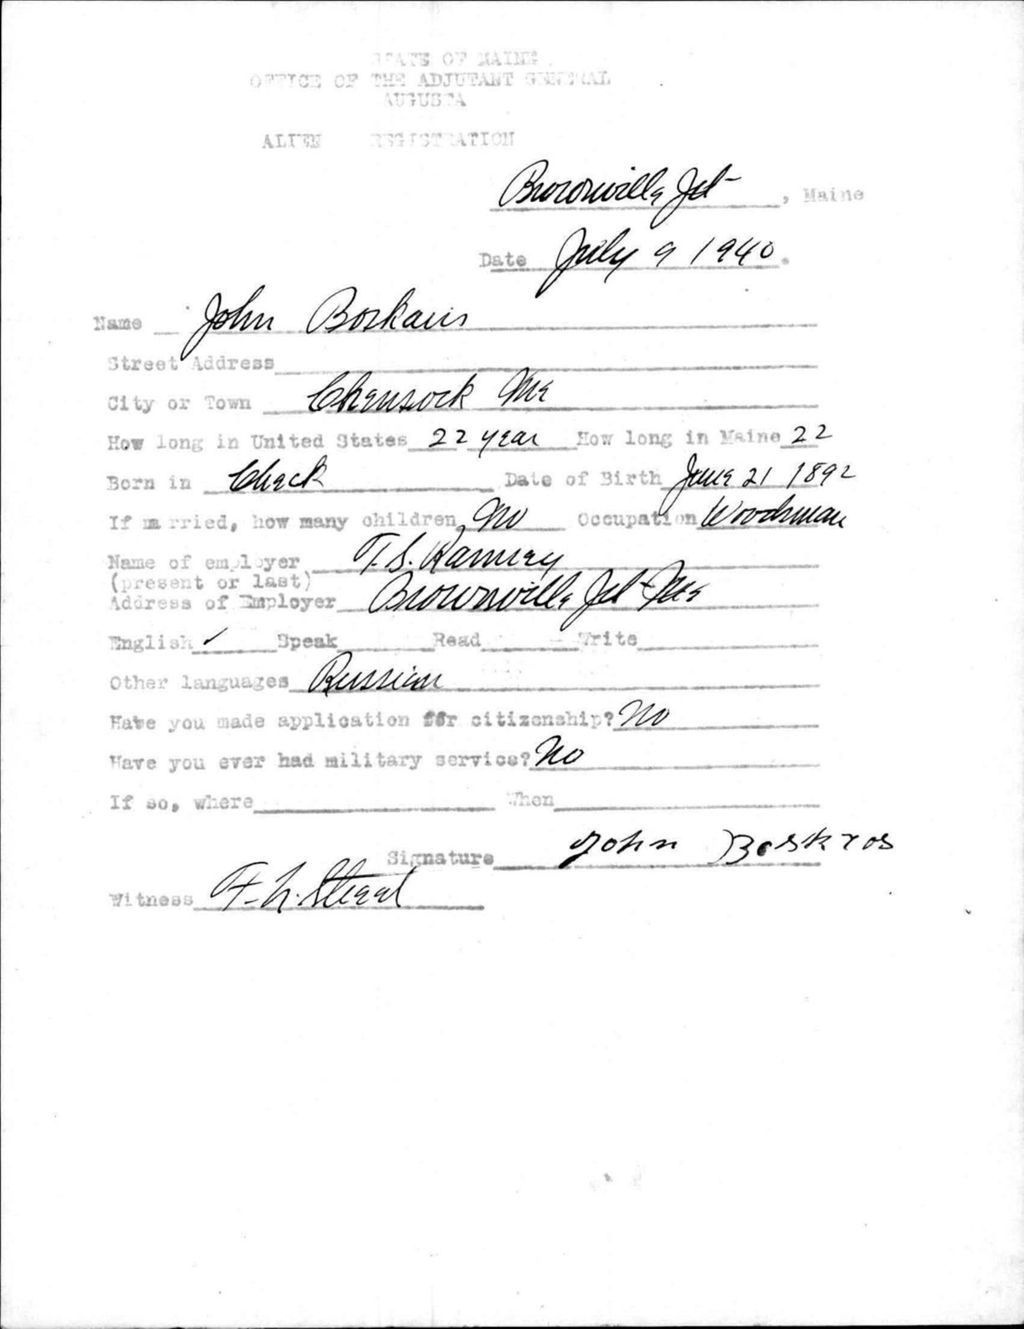 STATE OF MAINE
OFFICE OF THE ADJUTANT GENERAL
AUGUSTA
ALIEN REGISTRATION
Brownville Jct, Maine
Date July 9 1940.
Name John Boskaus
Street Address
City or Town Chensock Me
How long in United States 22 year How long in Maine 22
Born in Check Date of Birth June 21 1892
If married, how many children No Occupation Woodsman
Name of employer T. S. Ramsey
(present or last)
Address of Employer Brownville Jct - Me
English ✓ Speak Read Write
Other languages Russian
Have you made application for citizenship? No
Have you ever had military service? No
If so, where When
Signature John Boskros
Witness